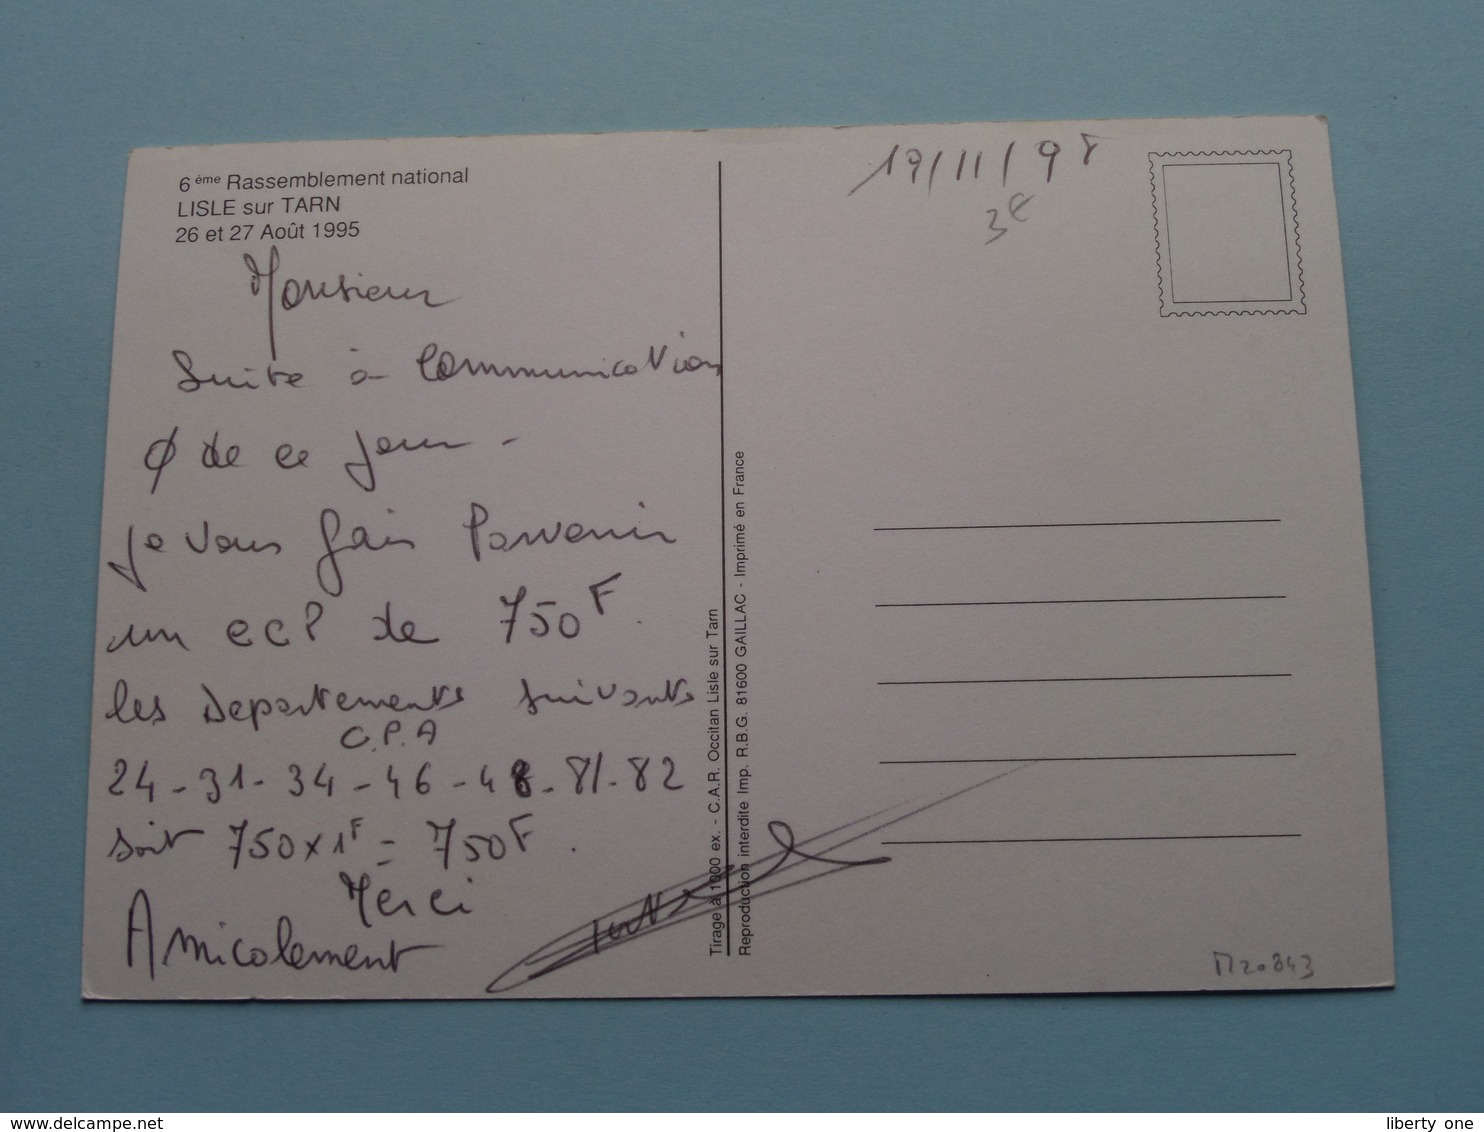 6ème Rassemblement national
LISLE sur TARN
26 et 27 Août 1995
19/11/98
3€
Monsieur
Suite à Communication
φ de ce jour -
je vous fais Parvenir
un CCP de 750F.
les Departements suivants
C.P.A
24-31-34-46-48-81-82
soit 750x1F = 750F.
Merci
Amicalement
Tirage à 1000 ex. - C.A.R. Occitan Lisle sur Tarn
Reproduction interdite Imp. R.B.G. 81600 GAILLAC - Imprimé en France
M20843
www.delcampe.net
liberty one